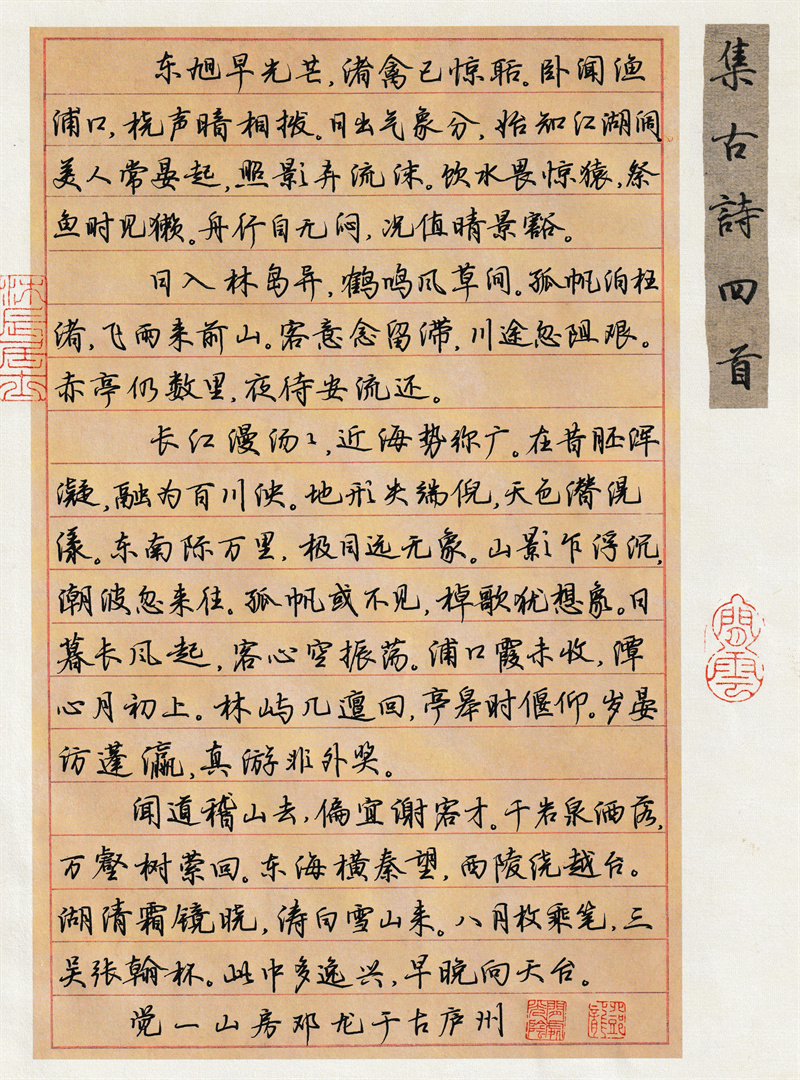 集古詩四首
东旭早光芒，渚禽已惊聒。卧闻渔
浦口，桡声暗相拨。日出气象分，始知江湖阔
美人常晏起，照影弄流沫。饮水畏惊猿，祭
鱼时见獭。舟行自无闷，况值晴景豁。
日入林岛异，鹤鸣风草间。孤帆泊枉
渚，飞雨来前山。客意念留滞，川途忽阻艰。
赤亭仍数里，夜待安流还。
长江漫汤〻，近海势弥广。在昔胚浑
凝，融为百川泱。地形失端倪，天色潜滉
漾。东南际万里，极目远无象。山影乍浮沉，
潮波忽来往。孤帆或不见，棹歌犹想象。日
暮长风起，客心空振荡。浦口霞未收，潭
心月初上。林屿几邅回，亭皋时偃仰。岁晏
访蓬瀛，真游非外奖。
闻道稽山去，偏宜谢客才。千岩泉洒落，
万壑树萦回。东海横秦望，西陵绕越台。
湖清霜镜晓，涛白雪山来。八月枚乘笔，三
吴张翰杯。此中多逸兴，早晚向天台。
觉一山房邓龙于古庐州
閒雲